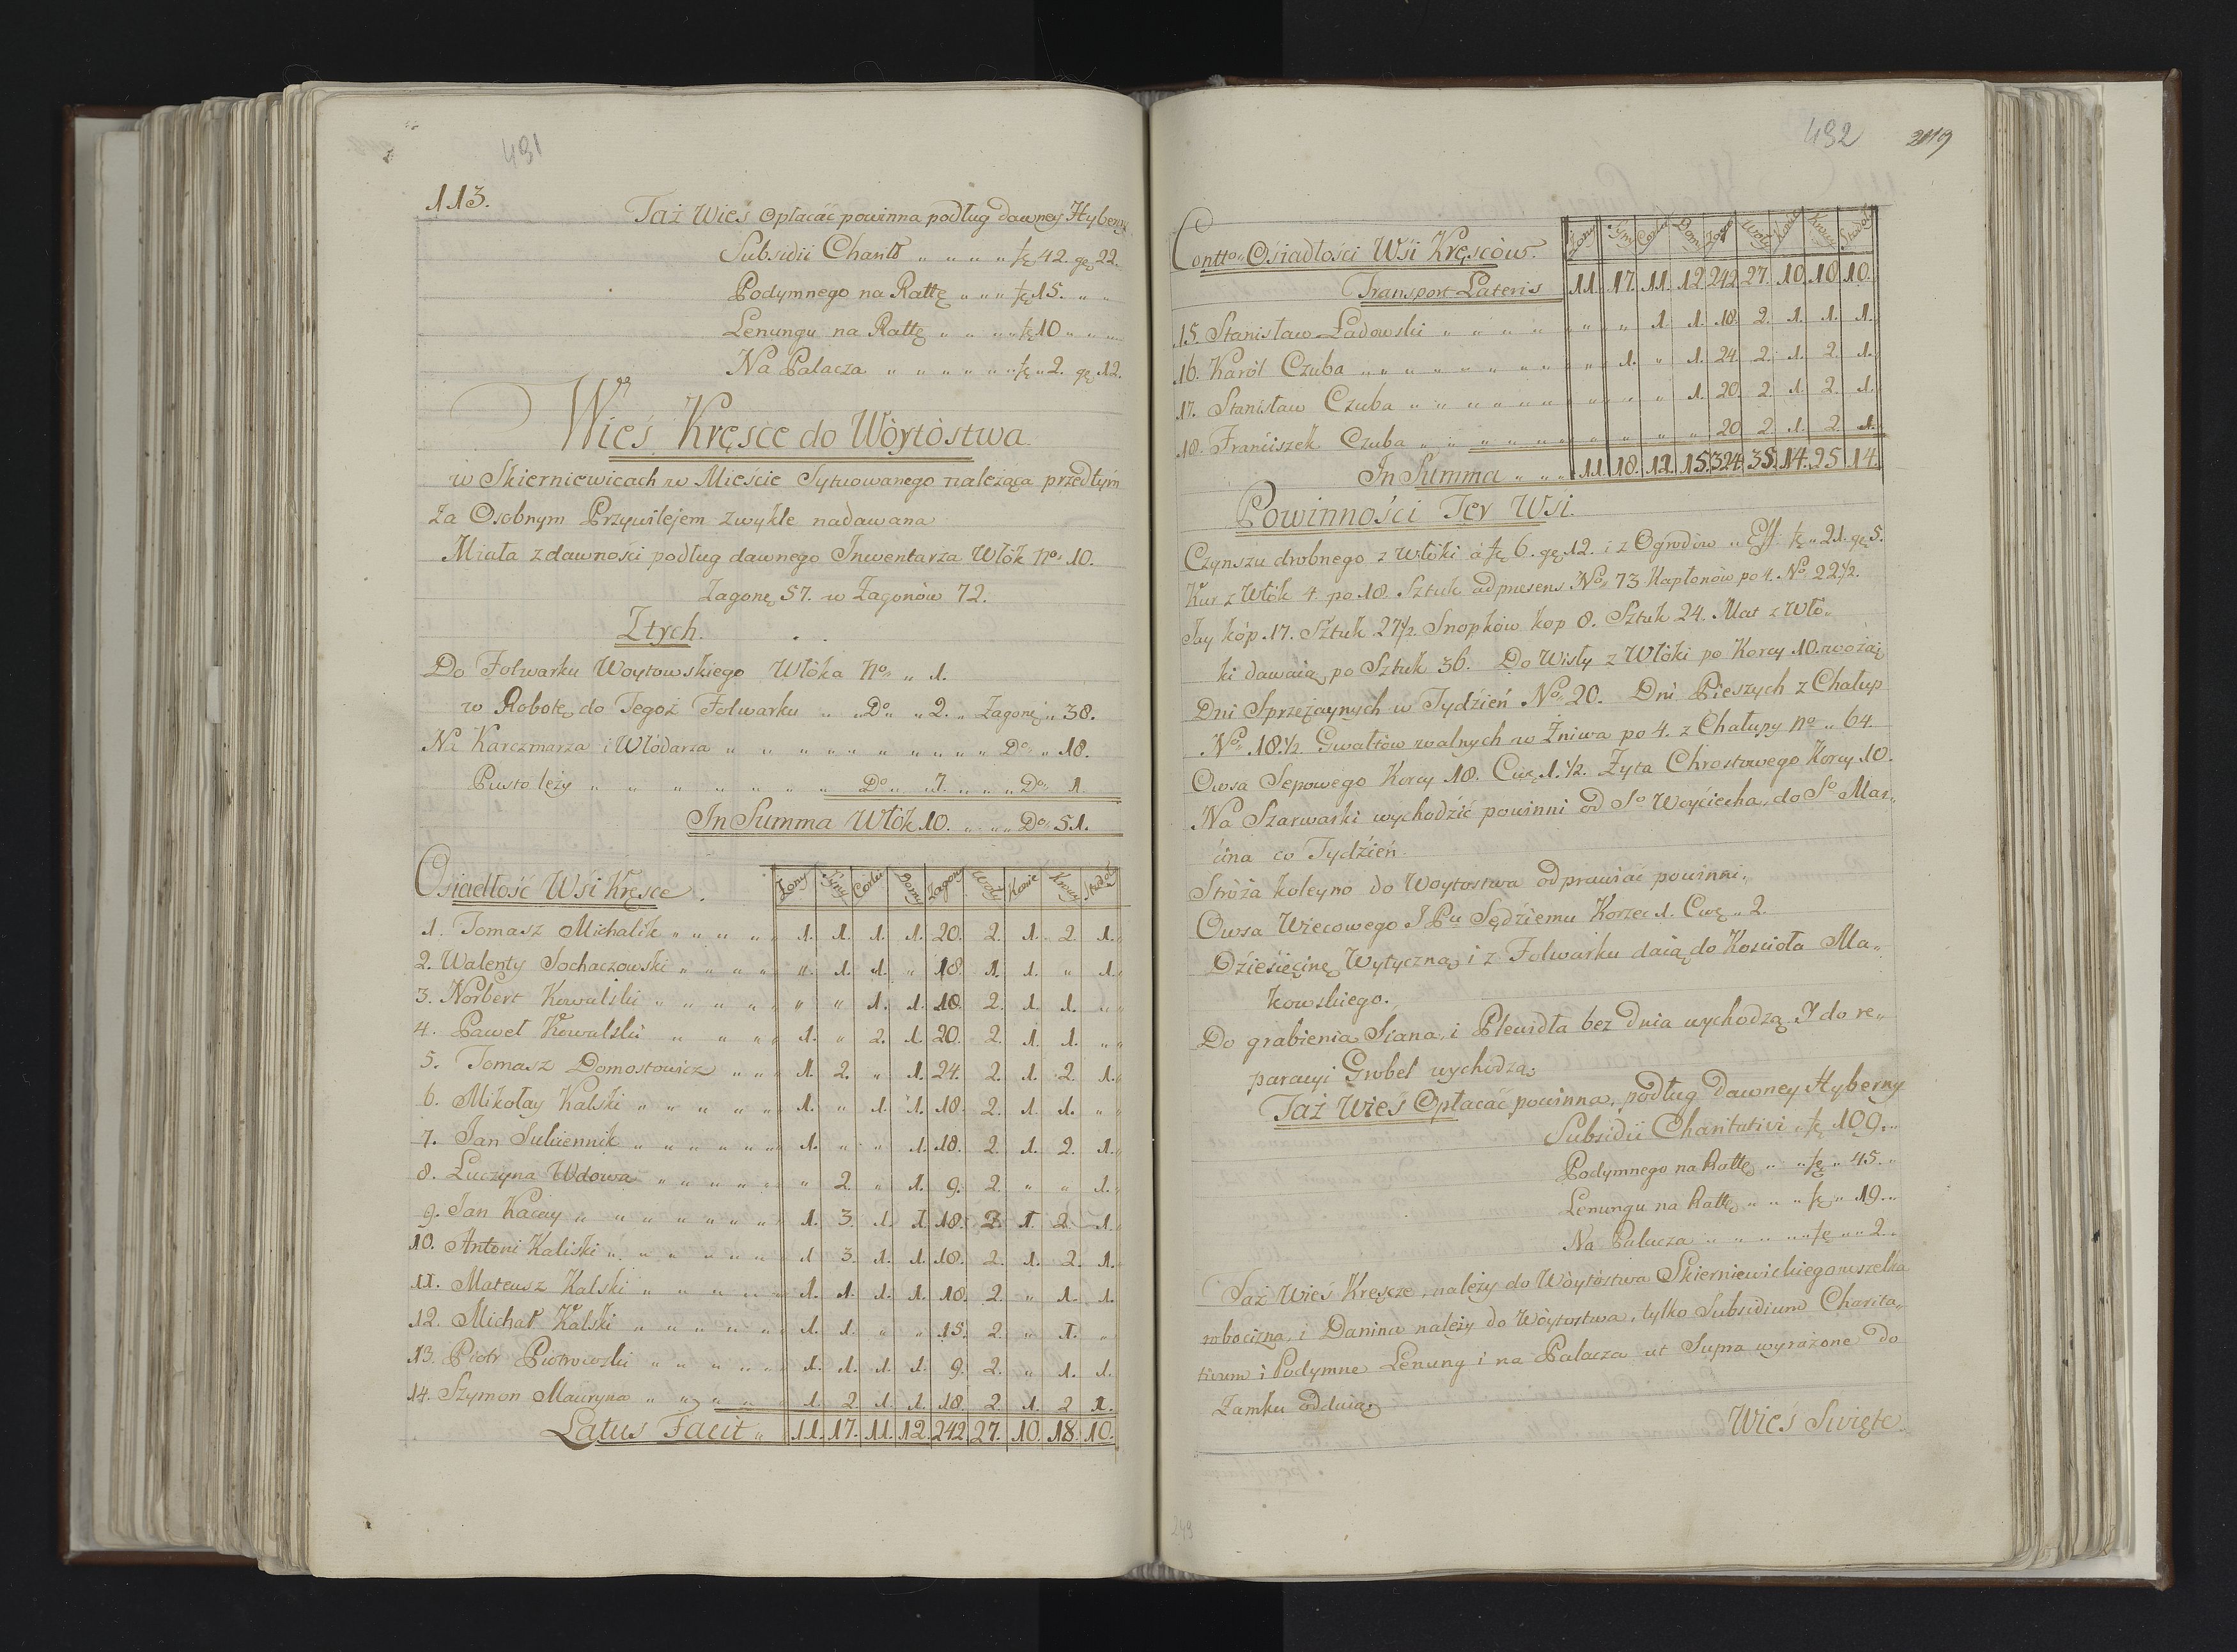 431
113.
Taż Wieś opłacać powinna podług dawney Hyberny
Subsidii Charit „ „ „ „ 42. 22.
Podymnego na Rattę „ „ „ 15. „ „
Lenungu na Rattę „ „ „ „ 10 „ „ „
Na Palacza „ „ „ „ „ „ 2. 12.
Wieś Kręsce do Wòytòstwa.
w Skierniewicach w Mieście Sytuowanego należąca przedtym
za Osobnym Przywilejem zwykle nadawana
Miała zdawności podług dawnego Inwentarza Włók No. 10.
Zagonę 57. w Zagonów 72.
Ztych.
Do Folwarku Woytowskiego Włóka No. „ 1.
w Robotę do Tegoż Folwarku „ „ Do. „ 2. „ Zagonę „ 38.
Na Karczmarza i Włódarza „ „ „ „ „ „ „ „ „ „ Do. „ 18.
Pusto leży „ „ „ „ „ „ „ Do. „ 7. „ „ „ Do. 1.
In Summa Włók 10. „ „ „ Do. 51.
Osiadłość Wsi Kręsce. Zony Syny Córki Domy Zagony Woły Konie Krowy Stodoły
1. Tomasz Michalik „ „ „ „ „ 1. 1. 1. 1. 20. 2. 1. 2. 1.
2. Walenty Sochaczowski „ „ „ „ „ 1. 1. „ 18. 1. 1. „ 1.
3. Norbert Kowalski „ „ „ „ „ „ „ 1. 1. 18. 2. 1. 1. „
4. Paweł Kowalski „ „ „ „ 1. „ 2. 1. 20. 2. 1. 1. „
5. Tomasz Domostowicz „ „ „ 1. 2. „ 1. 24. 2. 1. 2. 1.
6. Mikołay Kalski „ „ „ „ „ 1. „ 1. 1. 18. 2. 1. 1. „
7. Jan Sukiennik „ „ „ „ „ „ 1. „ „ 1. 18. 2. 1. 2. 1.
8. Łuczyna Wdowa „ „ „ „ „ „ 2. „ 1. 9. 2. „ „ 1.
9. Jan Kacay „ „ „ „ „ „ „ 1. 3. 1. 1. 18. 2. 1. 2. 1.
10. Antoni Kaliski „ „ „ „ „ „ 1 3. 1. 1. 18. 2. 1. 2. 1.
11. Mateusz Kalski „ „ „ „ „ 1. 1. 1. 1. 18. 2. „ 1. 1.
12. Michał Kalski „ „ „ „ „ „ 1. 1. „ „ 15. 2. „ 1. „
13. Piotr Piotrowski „ „ „ „ „ 1. 1. 1. 1. 9. 2. „ 1. 1.
14. Szymon Mauryna „ „ „ „ 1. 2. 1. 1. 18. 2. 1. 2 1.
Latus Facit „ 11. 17. 11. 12. 242. 27. 10. 18. 10.
432
Contto. Osiadłości Wśi Kręsców. Zony Syny Corki Domy Zagony Woły Konie Krowy Stodoły
Transport Lateris 11. 17. 11. 12. 242. 27. 10. 18. 10.
15. Stanisław Ładowski „ „ „ „ „ „ „ 1. 1. 18. 2. 1. 1. 1.
16. Karòl Czuba „ „ „ „ „ „ „ „ „ 1. „ 1. 24. 2. 1. 2. 1.
17. Stanisław Czuba „ „ „ „ „ „ „ „ „ 1. 20. 2. 1. 2. 1.
18. Franciszek Czuba „ „ „ „ „ „ „ „ „ „ 20 2. 1. 2. 1.
In Summa „ „ „ 11. 18. 12. 15. 324. 35. 14. 25 14.
Powinności Tey Wsi.
Czynszu drobnego z włòki á 6. 12. i z Ogrodòw „ Eff. 21. 5.
Kur z Włòk 4. po 18. Sztuk ad presens No. 73 Kapłonòw po 4. No. 22½.
Jay kóp. 17. Sztuk 27½. Snopków kop 8. Sztuk 24. Mat z Wło„
ki dawaią po Sztuk 36. Do Wisły z Włòki po Korcy 10. wożą
Dni Sprzężaynych w Tydźień No. 20. Dni Pieszych z Chałup
No. 18½. Gwałtòw walnych w Żniwa po 4. z Chałupy No. „ 64.
Owsa Sepowego Korcy 18. Cwę. 1.½. Żyta Chrostowego Korcy 10.
Na Szarwarki wychodźić powinni od So. Woyćiecha, do So. Mar„
ćina co Tydźień.
Stròża koleyno do Woytostwa odprawiać powinni.
Owsa Wiecowego J Pu Sędźiemu Korzec 1. Cwę. „ 2.
Dźiesięćinę Wytyczną i z Folwarku daią do Kosćioła Ma„
kowskiego.
Do grabienia Siana, i Plewidła bez Dnia wychodzą. I do re„
paracyi Grobel wychodzą.
Taż Wieś Opłacać powinna, podług Dawney Hyberny
Subsidii Charitativi 109. „
Podymnego na Rattę „ „ „ 45. „
Lenungu na Rattę „ „ „ „ 19. „
Na Palacza „ „ „ „ „ „ „ 2. „
Taż Wieś Kręscze, należy do Wòytòstwa Skierniewickiego wszelka
robocizna, i Danina należy do Wòytostwa, tylko Subsidium Charita„
tivum i Podymne Lenung i na Palacza ut Supra wyrażone do
Zamku oddaią
Wieś Swięte.
249